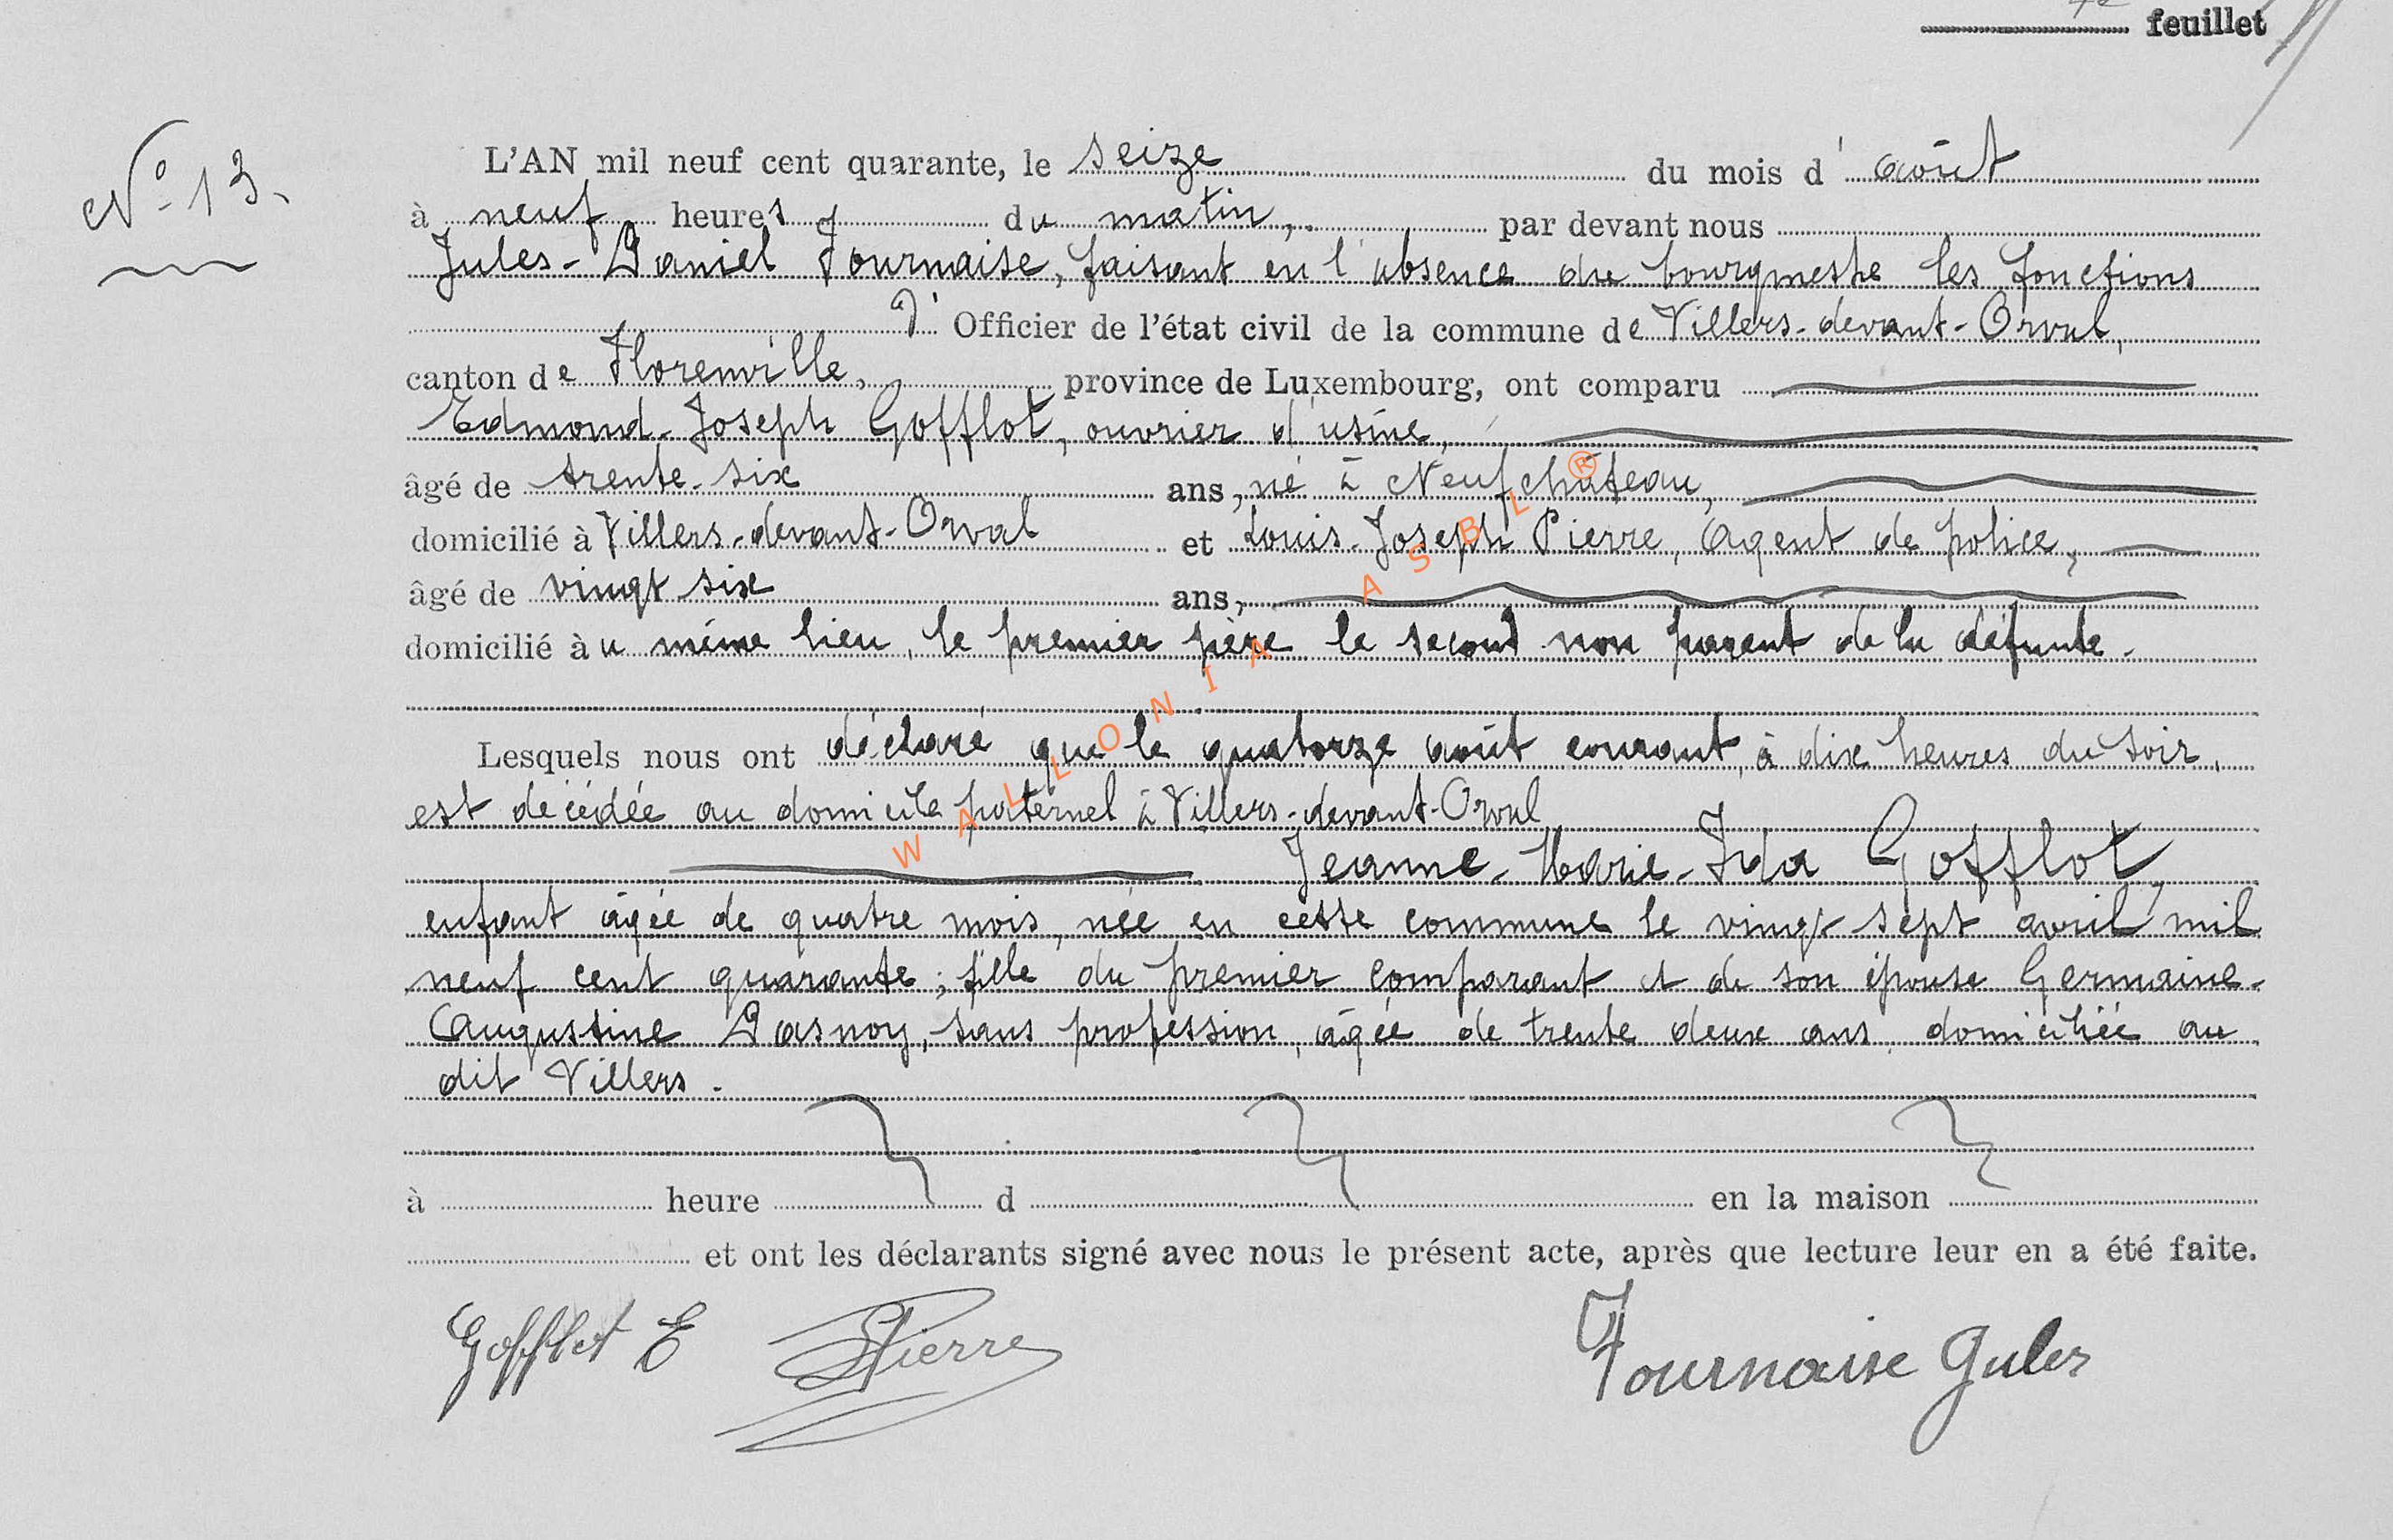 feuillet
N° 13.
L'AN mil neuf cent quarante, le seize du mois d'août
à neuf heures du matin, par devant nous
Jules-Daniel Fournaise, faisant en l'absence du bourgmestre les fonctions
d'Officier de l'état civil de la commune de Villers-devant-Orval,
canton de Florenville, province de Luxembourg, ont comparu
Edmond-Joseph Gofflot, ouvrier d'usine,
âgé de trente-six ans, né à Neufchâteau,
domicilié à Villers-devant-Orval et Louis-Joseph Pierre, agent de police,
âgé de vingt six ans,
domicilié au même lieu, le premier père le second non parent de la défunte.
Lesquels nous ont déclaré que le quatorze août courant, à dix heures du soir,
est décédée au domicile paternel à Villers-devant-Orval
Jeanne-Marie-Ida Gofflot,
enfant âgée de quatre mois, née en cette commune le vingt sept avril mil
neuf cent quarante; fille du premier comparant et de son épouse Germaine-
Augustine Dasnoy, sans profession, âgée de trente deux ans, domiciliée au
dit Villers.
à heure d en la maison
et ont les déclarants signé avec nous le présent acte, après que lecture leur en a été faite.
Gofflot E Pierre Fournaise Jules
WALLONIA ASBL®